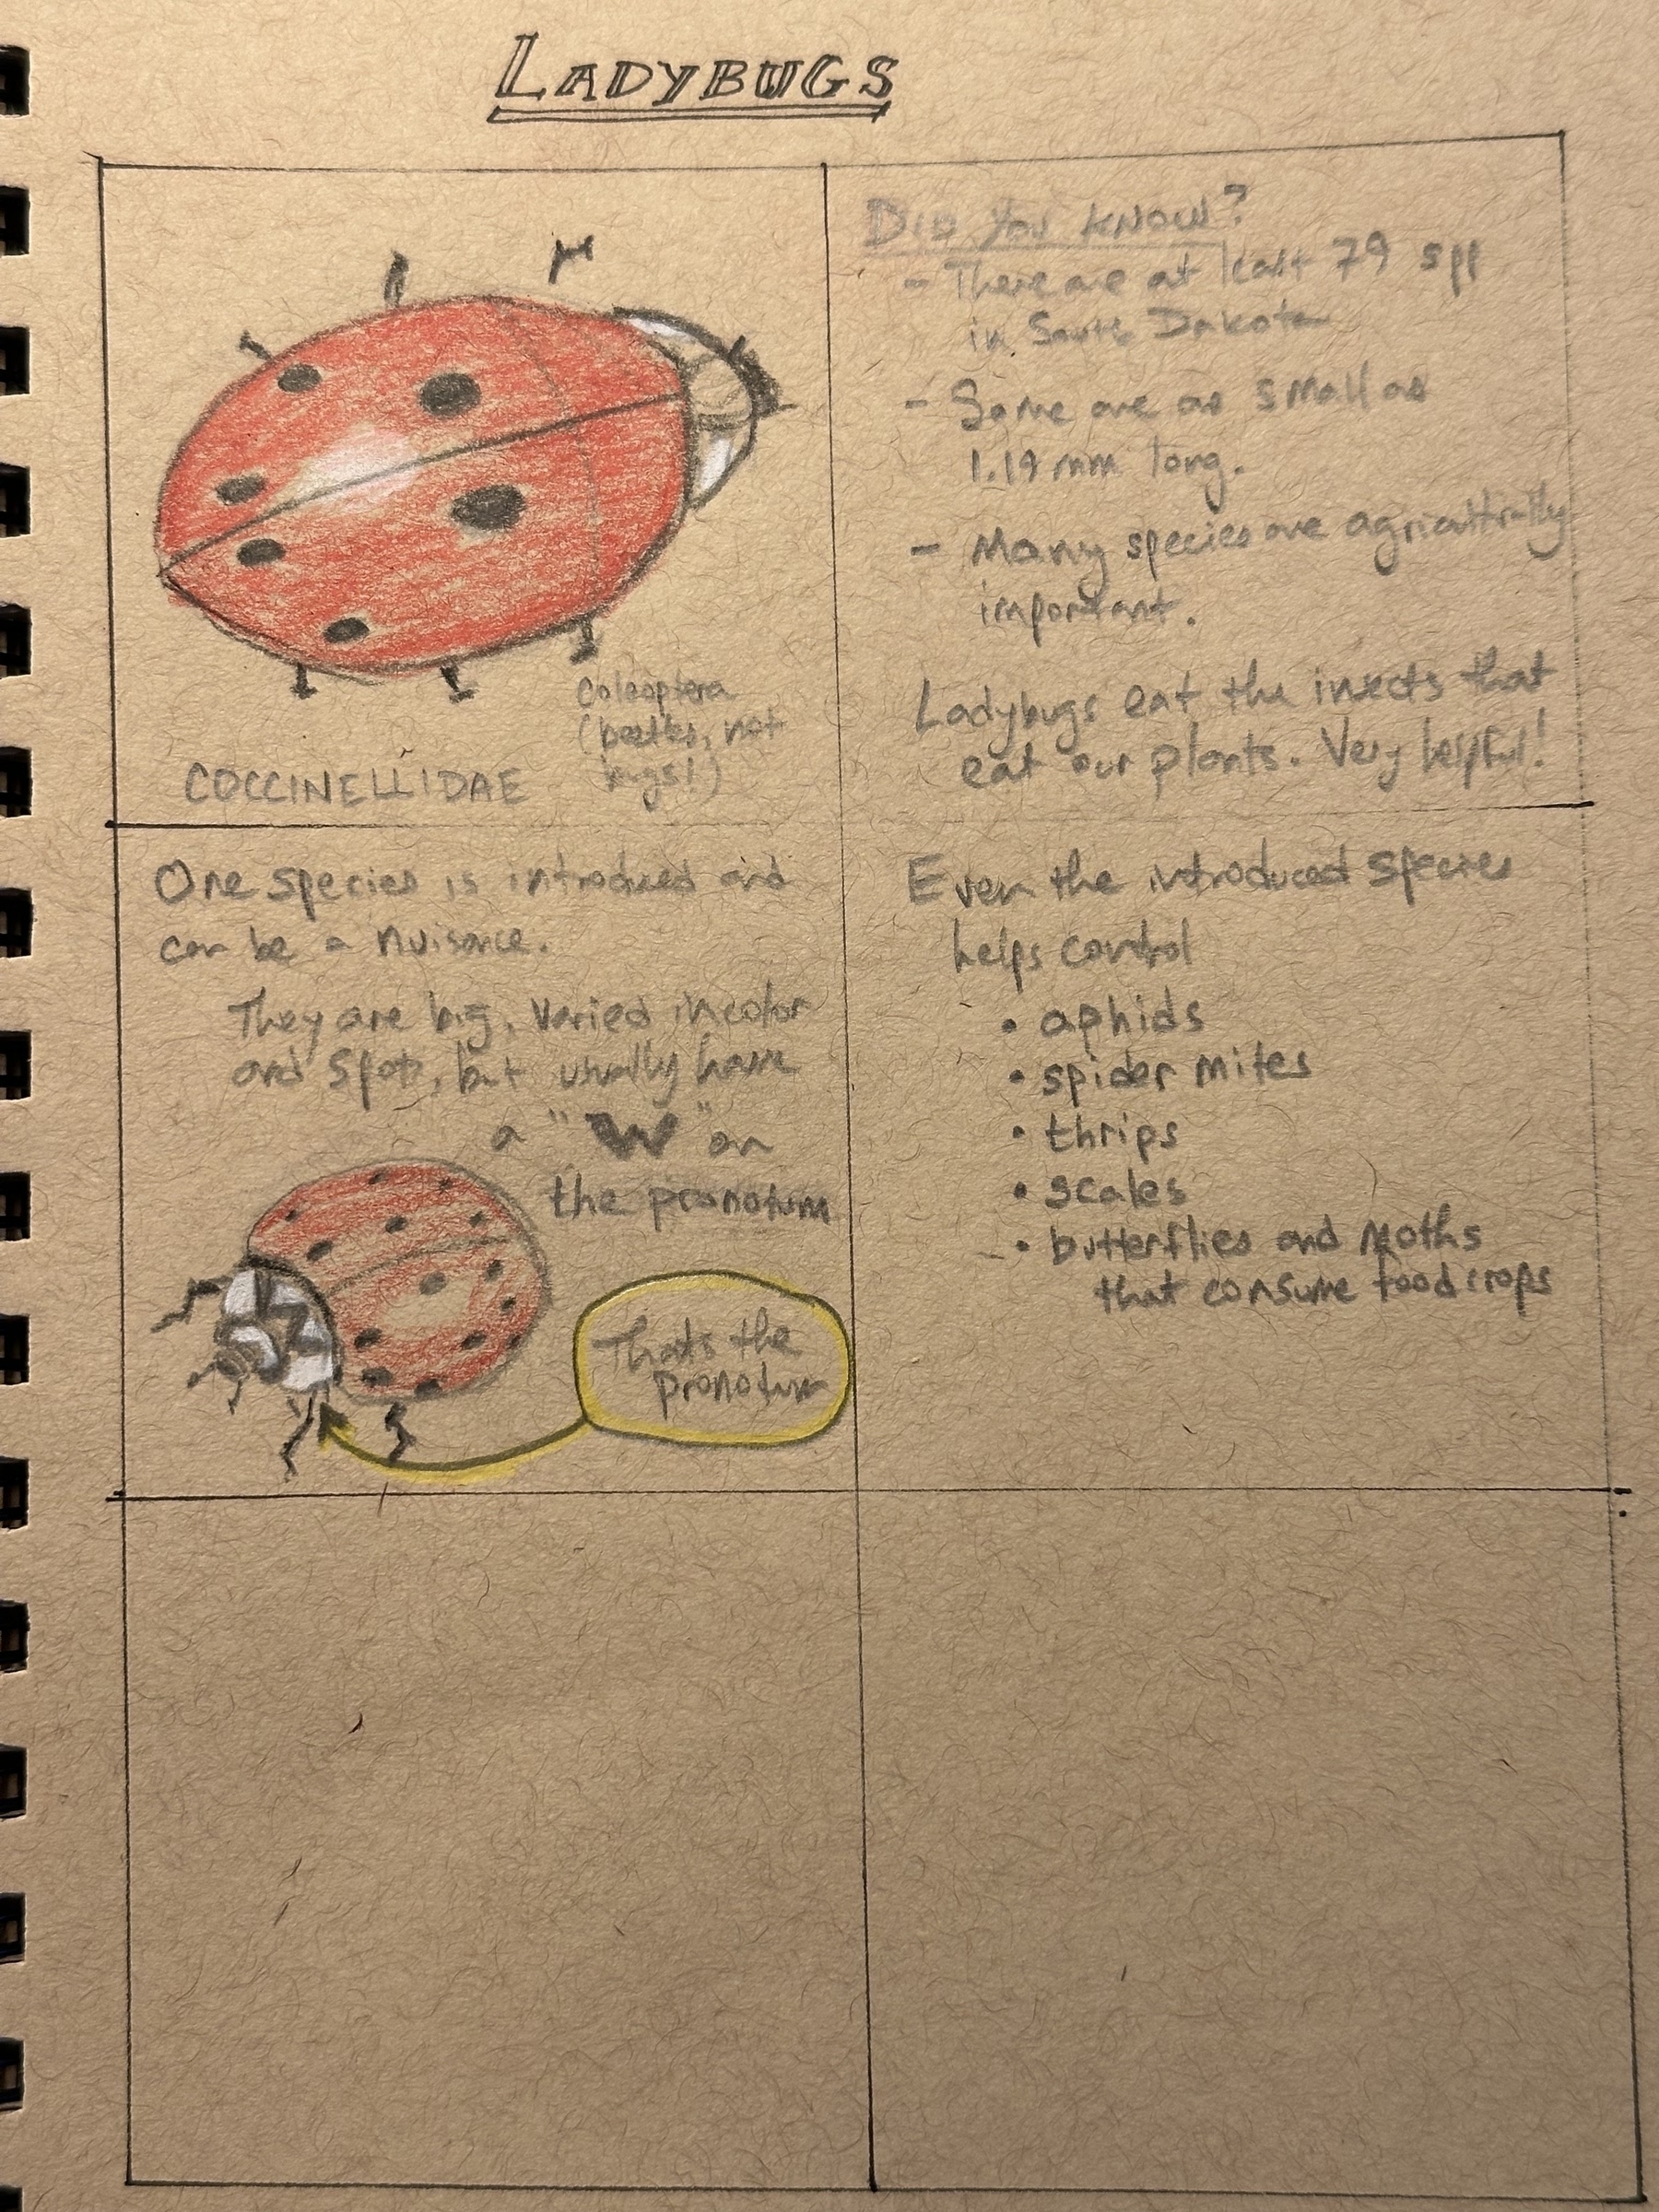 LADYBUGS
COLEOPTERA
(beetles, not
bugs!)
COCCINELLIDAE
DID YOU KNOW?
- There are at least 79 spp
in South Dakota
- Some are as small as
1.19 mm long.
- Many species are agriculturally
important.
Ladybugs eat the insects that
eat our plants. Very helpful!
One species is introduced and
can be a nuisance.
They are big, varied in color
and spots, but usually have
a "W" on
the pronotum
That's the
pronotum
Even the introduced species
helps control
• aphids
• spider mites
• thrips
• scales
• butterflies and moths
that consume food crops